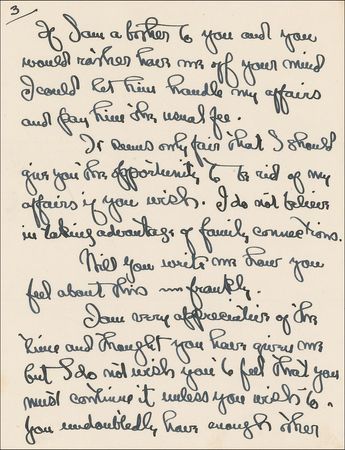 3
If I am a bother to you and you
would rather have me off your mind
I could let him handle my affairs
and pay him the usual fee.
It seems only fair that I should
give you the opportunity to be rid of my
affairs if you wish. I do not believe
in taking advantage of family connections.
Will you write me how you
feel about this — frankly.
I am very appreciative of the
time and thought you have given me
but I do not wish you to feel that you
must continue it unless you wish to.
You undoubtedly have enough other